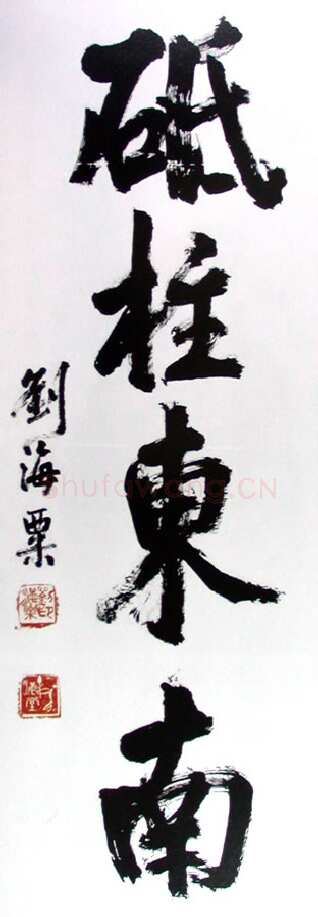 砥柱東南
劉海粟
shufawang.CN